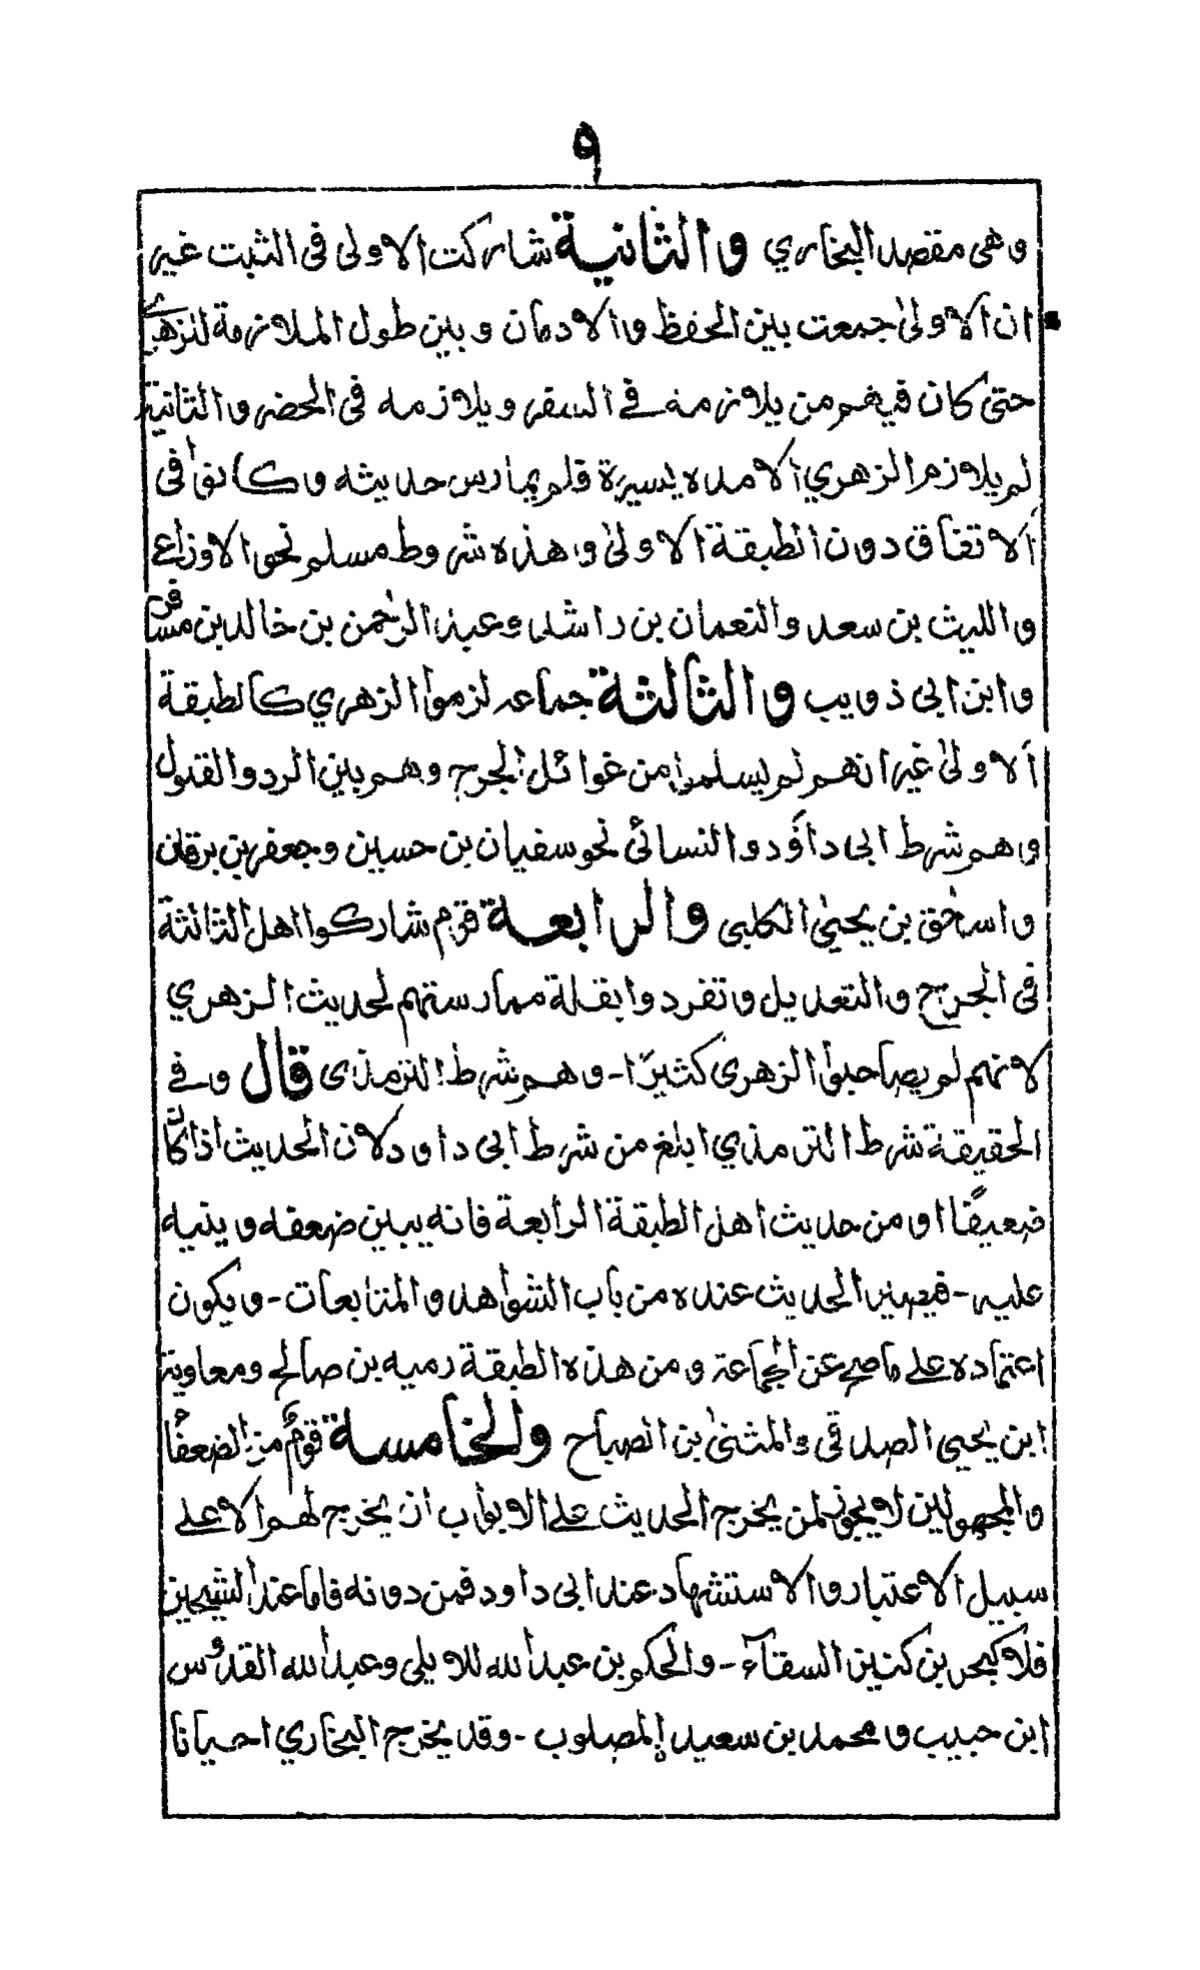 ٩
وهى مقصد البخاري والثانية شاركت الاولى فى الثبت غير
ان الاولىٰ جمعت بين الحفظ والادمان وبين طول الملازمة للزهري
حتىٰ كان فيهم من يلازمه فے السفر ويلازمه فى الحضر والثانية
لم يلازم الزهري الا مده يسيرة فلم يمارس حديثه وكانوا فى
الاتفاق دون الطبقة الاولىٰ وهذه شروط مسلم نحو الاوزاعے
والليث بن سعد والنعمان بن راشد وعبد الرحمن بن خالد بن مسافر
وابن ابى ذويب والثالثة جماعه لزموا الزهري كالطبقة
الاولىٰ غير انهم لم يسلموا من غوائل الجرح وهم بين الرد والقبول
وهم شرط ابى داؤد والنسائى نحو سفيان بن حسين وجعفر بن برقان
واسحٰق بن يحيىٰ الكلبى والرابعة قوم شاركوا اهل الثالثة
فى الجرح والتعديل وتفردوا بقلة ممارستهم لحديث الزهري
لانهم لم يصاحبوا الزهرى كثيرًا - وهم شرط الترمذى قال وفے
الحقيقة شرط الترمذي ابلغ من شرط ابى داود لان الحديث اذا كان
ضعيفًا او من حديث اهل الطبقة الرابعة فانه يبين ضعفه وينبه
عليه - فيصير الحديث عنده من باب الشواهد والمتابعات - ويكون
اعتماده علے ما صح عن الجماعة ومن هذه الطبقة رميه بن صالح ومعاوية
ابن يحيى الصدقى والمثنىٰ بن الصباح والخامسة قومٌ من الضعفاء
والمجهولين لا يجوز لمن يخرج الحديث علے الابواب ان يخرج لهم الا علے
سبيل الاعتبار والاستشهاد عند ابى داود فمن دونه فاما عند الشيخين
فلا كبحر بن كنيز السقاء - والحكم بن عبد الله للايلى وعبد الله القدوس
ابن حبيب ومحمد بن سعيد المصلوب - وقد يخرج البخاري احيانا